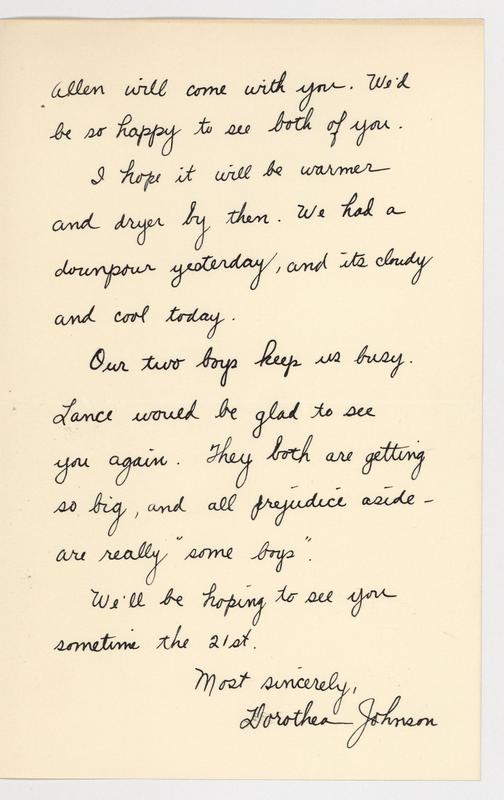 Allen will come with you. We'd
be so happy to see both of you.
I hope it will be warmer
and dryer by then. We had a
downpour yesterday, and its cloudy
and cool today.
Our two boys keep us busy.
Lance would be glad to see
you again. They both are getting
so big, and all prejudice aside –
are really "some boys".
We'll be hoping to see you
sometime the 21st.
Most sincerely,
Dorothea Johnson